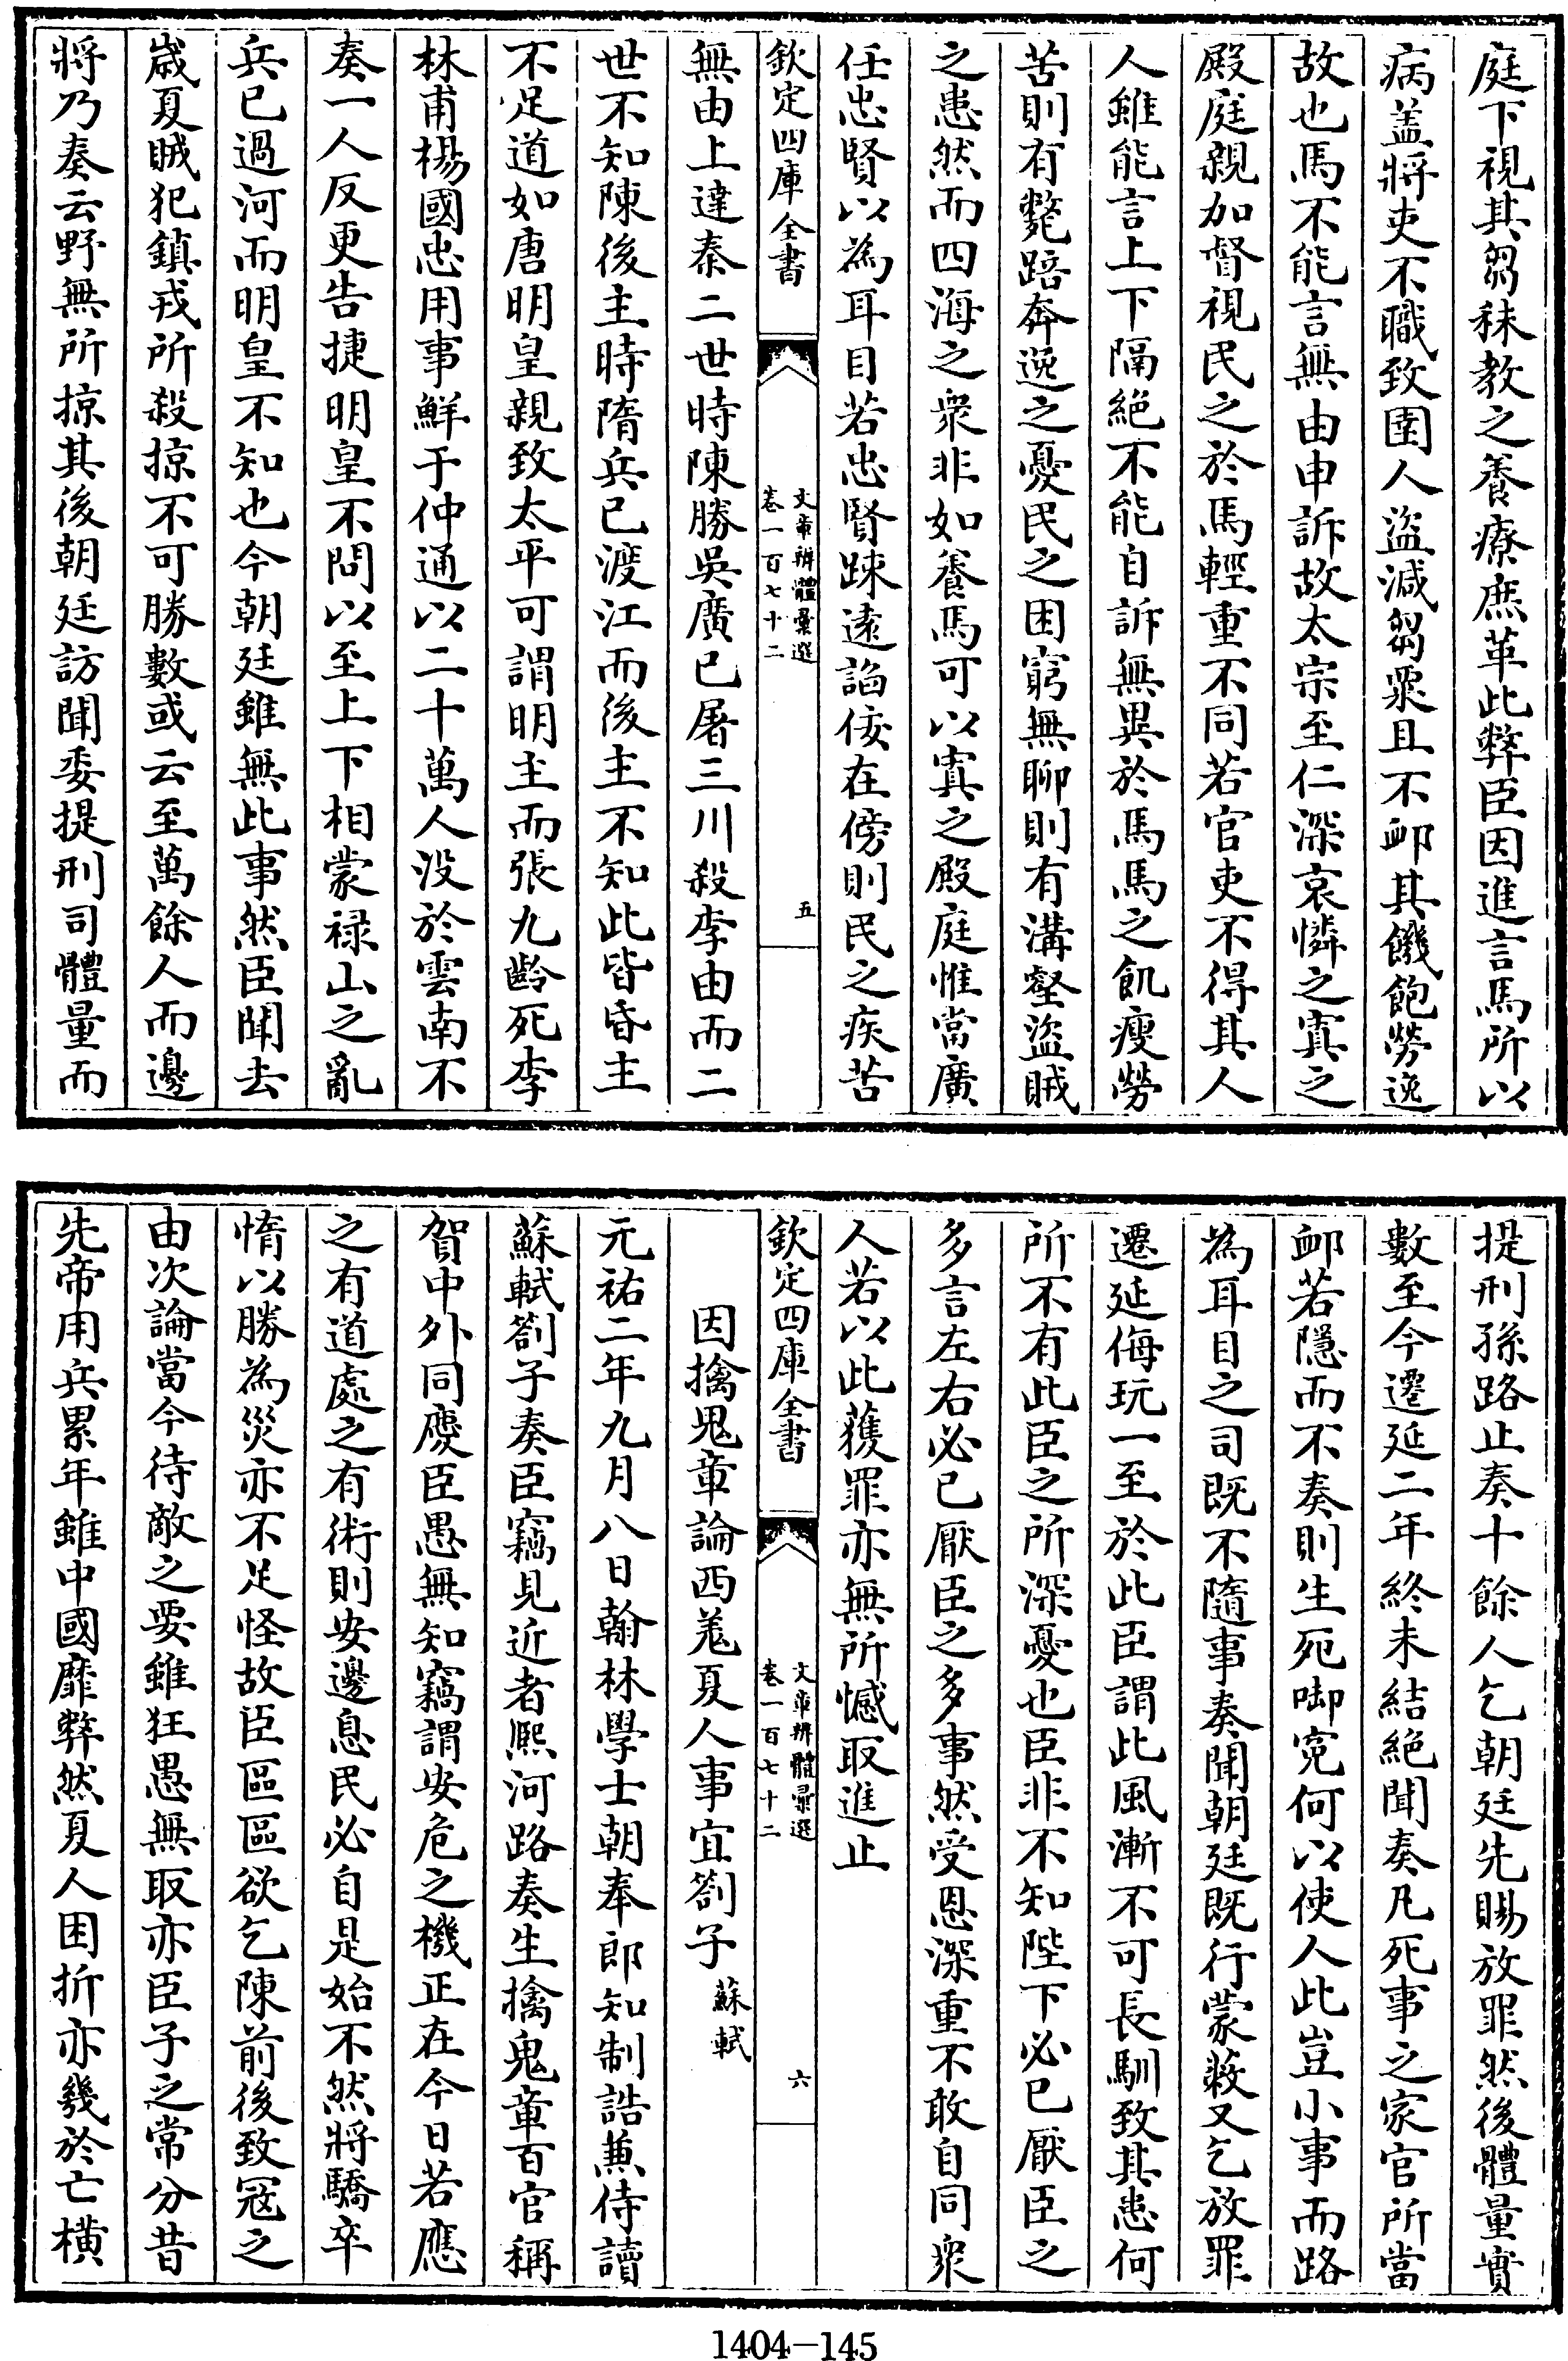 庭下視其芻秣教之養療庶革此弊臣因進言馬所以
病盖將吏不職致圉人盜減芻粟且不䘏其饑飽勞逸
故也馬不能言無由申訴故太宗至仁深哀憐之寘之
殿庭親加督視民之於馬輕重不同若官吏不得其人
人雖能言上下隔絶不能自訴無異於馬馬之飢瘦勞
苦則有斃踣奔逸之憂民之困窮無聊則有溝壑盜賊
之患然而四海之衆非如養馬可以寘之殿庭惟當廣
任忠賢以為耳目若忠賢踈遠諂佞在傍則民之疾苦
欽定四庫全書
文章辨體彙選
卷一百七十二
五
無由上達秦二世時陳勝吳廣已屠三川殺李由而二
世不知陳後主時隋兵已渡江而後主不知此皆昏主
不足道如唐明皇親致太平可謂明主而張九齡死李
林甫楊國忠用事鮮于仲通以二十萬人没於雲南不
奏一人反更告捷明皇不問以至上下相蒙禄山之亂
兵已過河而明皇不知也今朝廷雖無此事然臣聞去
歳夏賊犯鎮戎所殺掠不可勝數或云至萬餘人而邊
將乃奏云野無所掠其後朝廷訪聞委提刑司體量而
提刑孫路止奏十餘人乞朝廷先賜放罪然後體量實
數至今遷延二年終未結絶聞奏凡死事之家官所當
䘏若隱而不奏則生死啣寃何以使人此豈小事而路
為耳目之司既不隨事奏聞朝廷既行蒙蔽又乞放罪
遷延侮玩一至於此臣謂此風漸不可長馴致其患何
所不有此臣之所深憂也臣非不知陛下必已厭臣之
多言左右必已厭臣之多事然受恩深重不敢自同衆
人若以此獲罪亦無所憾取進止
欽定四庫全書
文章辨體彙選
卷一百七十二
六
因擒鬼章論西羗夏人事宜劄子 蘇軾
元祐二年九月八日翰林學士朝奉郎知制誥兼侍讀
蘇軾劄子奏臣竊見近者熈河路奏生擒鬼章百官稱
賀中外同慶臣愚無知竊謂安危之機正在今日若應
之有道處之有術則安邊息民必自是始不然將驕卒
惰以勝為災亦不足怪故臣區區欲乞陳前後致寇之
由次論當今待敵之要雖狂愚無取亦臣子之常分昔
先帝用兵累年雖中國靡弊然夏人困折亦幾於亡横
1404—145